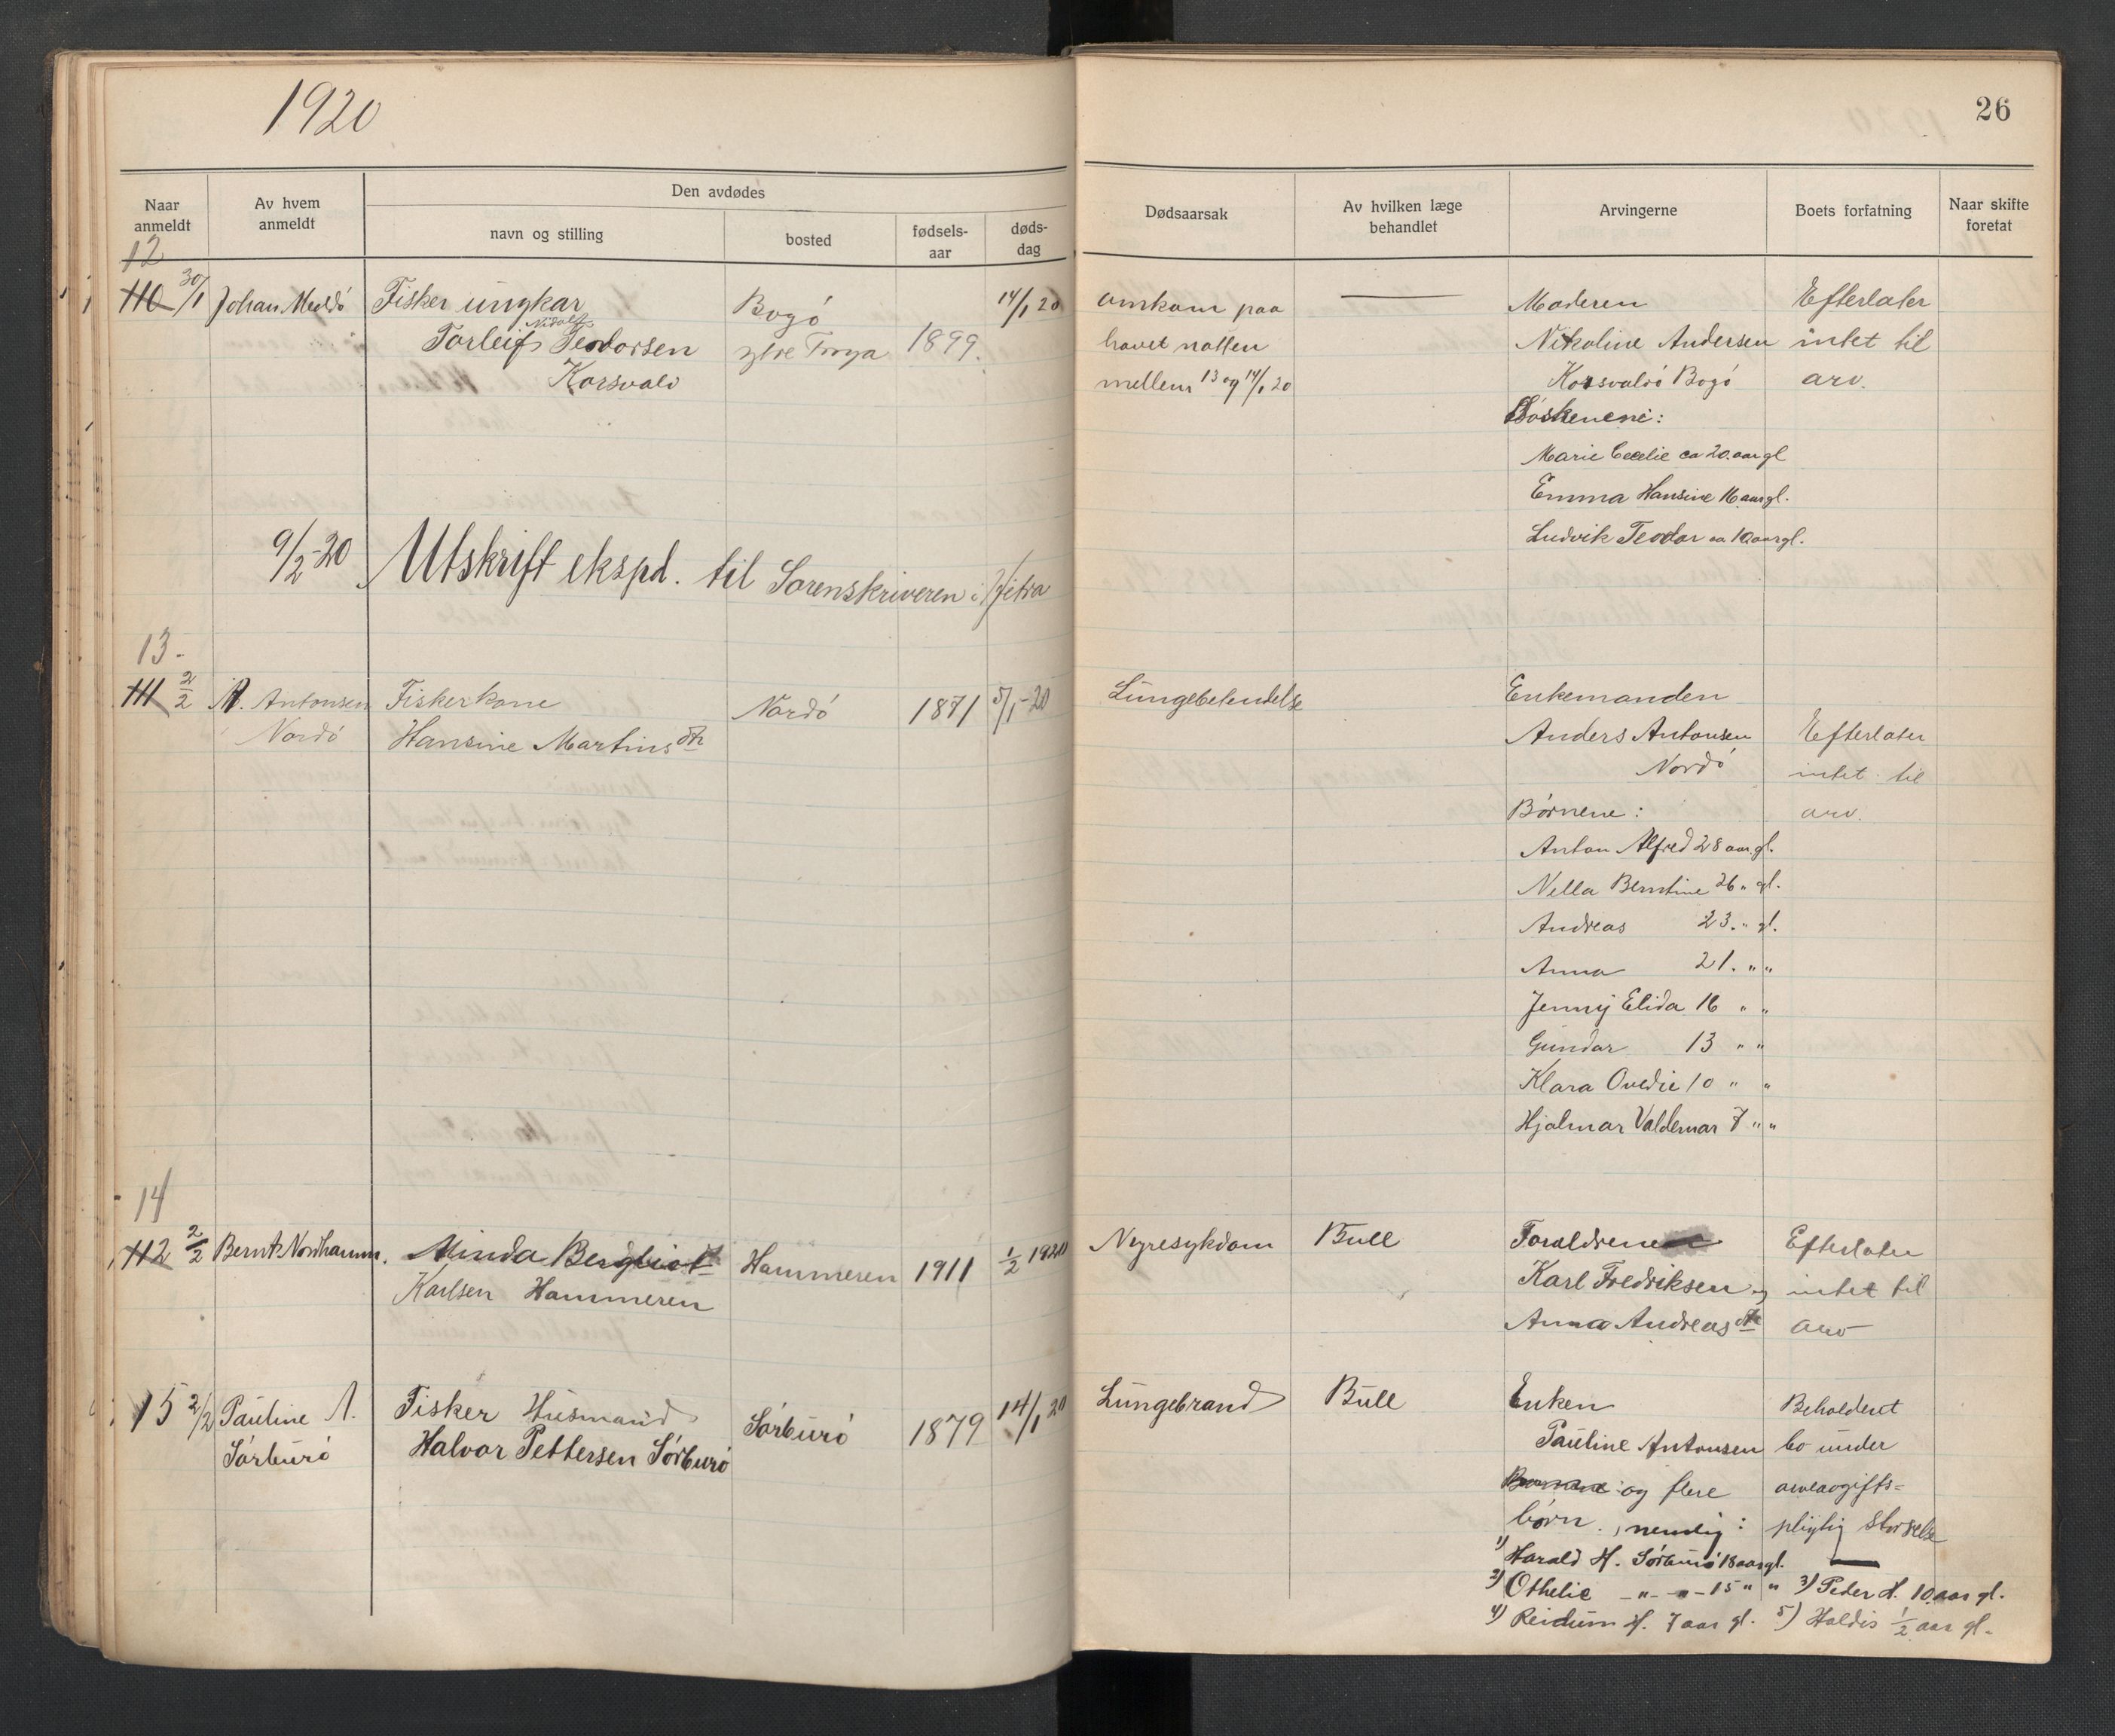 1920
26
Naar anmeldt
Av hvem anmeldt
Den avdødes
navn og stilling
bosted
fødsels-aar
døds-dag
Dødsaarsak
Av hvilken læge behandlet
Arvingerne
Boets forfatning
Naar skifte foretat
12
110 30/1 Johan Meldó Fisker ungkar Bogó 14/1 20 omkom paa Moderen Efterlater
Nidolf
Torleif Teodorsen ytre Froya 1899. havet natten Nikoline Andersen intet til
Korsvald mellem 13 og 14/1 20 Korsvaldó Bogó arv.
Søskenene:
Marie Cecelie ca 20. aar gl
Emma Hansine 16 aar gl.
Ludvik Teodor ca 10 aar gl.
9/2-20 Utskrift ekspd. til Sorenskriveren i Hitra
13.
111 2/2 A. Antonsen Fiskerkone Nordó 1871 5/1-20 Lungebetendelse Enkemanden
Nordó Hansine Martinsdtr Anders Antonsen Efterlater
Nordó intet til
Børnene: arv.
Anton Alfred 28 aar gl.
Nella Berntine 26 " gl.
Andreas 23. " gl.
Anna 21. " "
Jenny Elida 16 " "
Gundar 13 " "
Klara Ovedie 10 " "
Hjalmar Valdemar 7 " "
14
112 2/2 Bernt Nordhamm. Minda Bergliot Hammeren 1911 1/2 1920 Nyresykdom Bull Foraldrene Efterlater
Karlsen Hammeren Karl Fredriksen og intet til
Anna Andreasdtr arv
15 2/2 Pauline A. Fisker Husmand Sørburó 1879 14/1 20 Lungebrand Bull Enken Beholdent
Sørburó Halvor Pettersen Sørburó Pauline Antonsen bo under
og flere arveavgifts=
børn., nemlig: pligtig størrelse
1) Harald H. Sørburó 18 aar gl.
2) Othelie -"-"- 15 " " 3) Peder H. 10 aar gl.
4) Reidum H. 7 aar gl. 5) Haldis 1/2 aar gl.